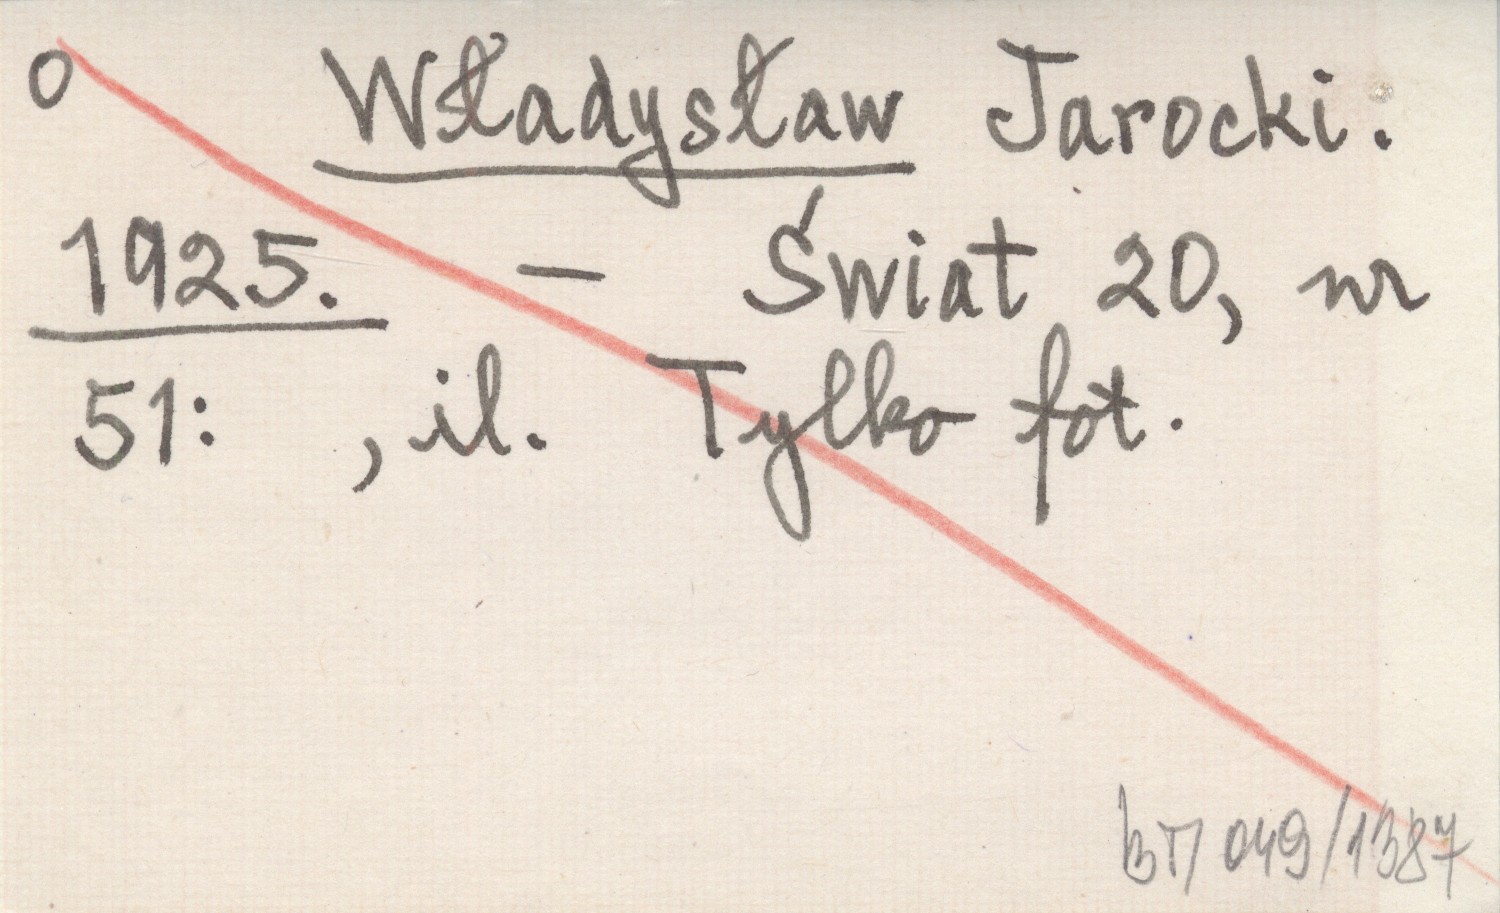 0 Władysław Jarocki.
1925. — Świat 20, nr
51: , il. Tylko fot.
049/1387